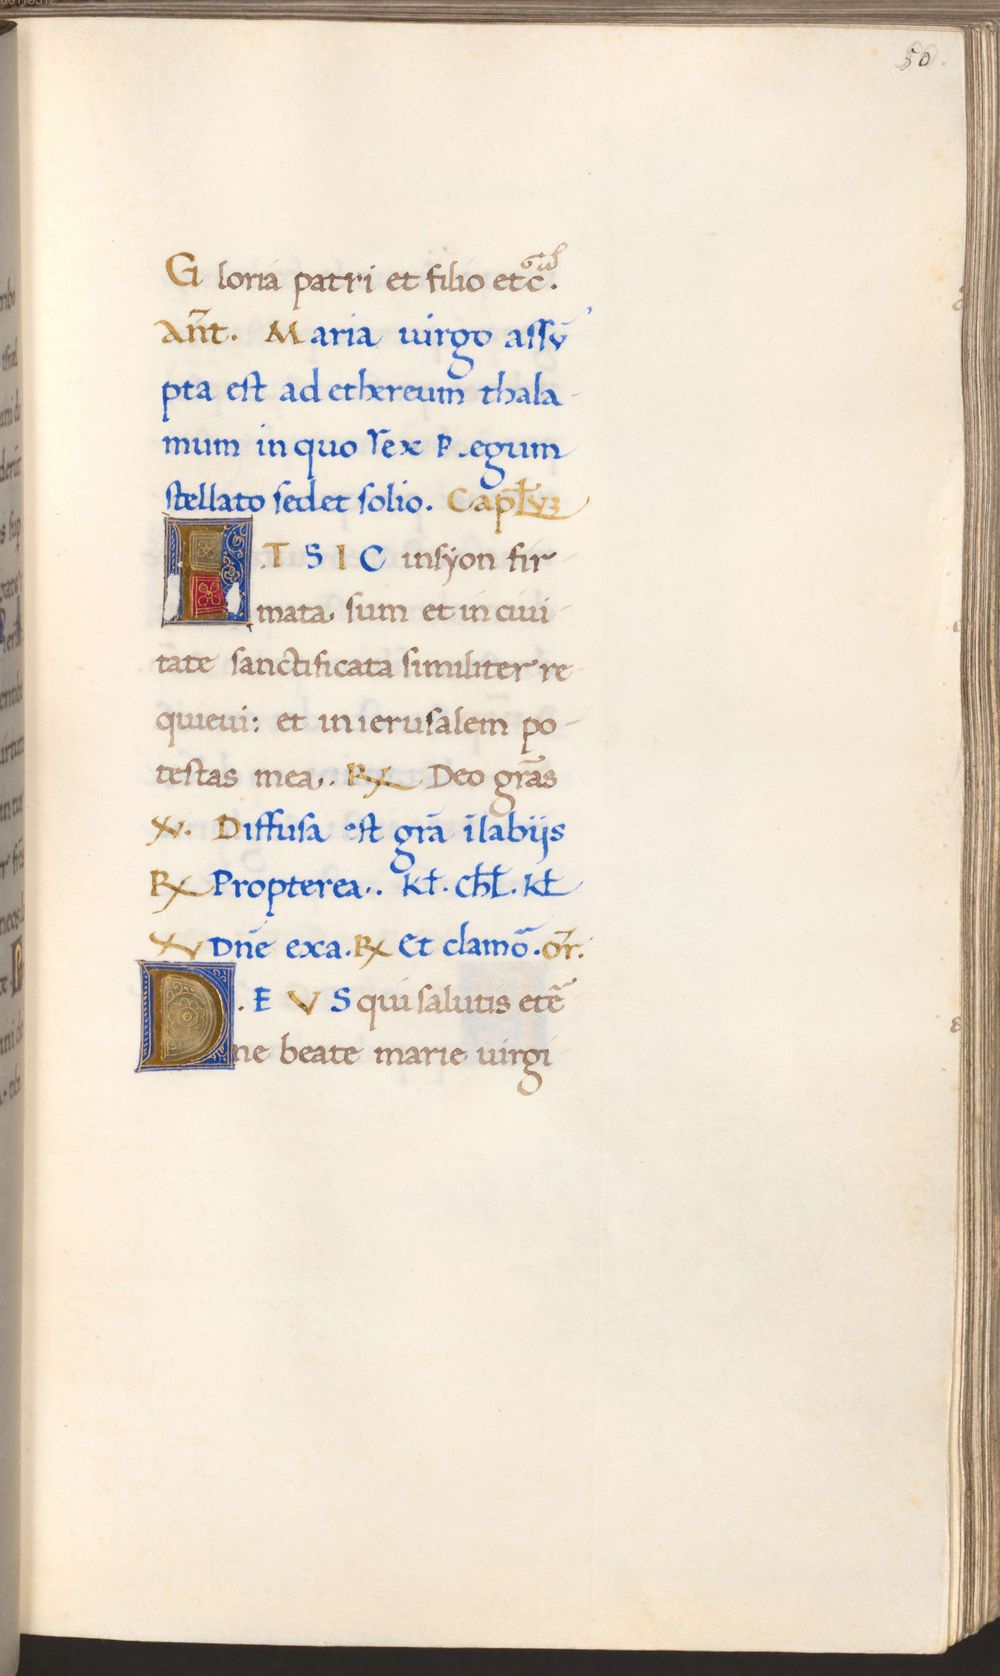 50.
Gloria patri et filio etc̄.
Añt. Maria uirgo assū
pta est ad ethereum thala-
mum in quo rex Regum
stellato sedet solio. Capl̄uꝫ
ET SIC insyon fir-
mata. sum et in ciui-
tate sanctificata similiter re-
quieui: et in ierusalem po-
testas mea.. ℟ Deo grās
℣. Diffusa est grā ī labijs
℟ Propterea.. kł. chł. kł
℣ Dñe exa. ℟ Et clamō. or̄.
D.EVS qui salutis etē
ne beate marie uirgi